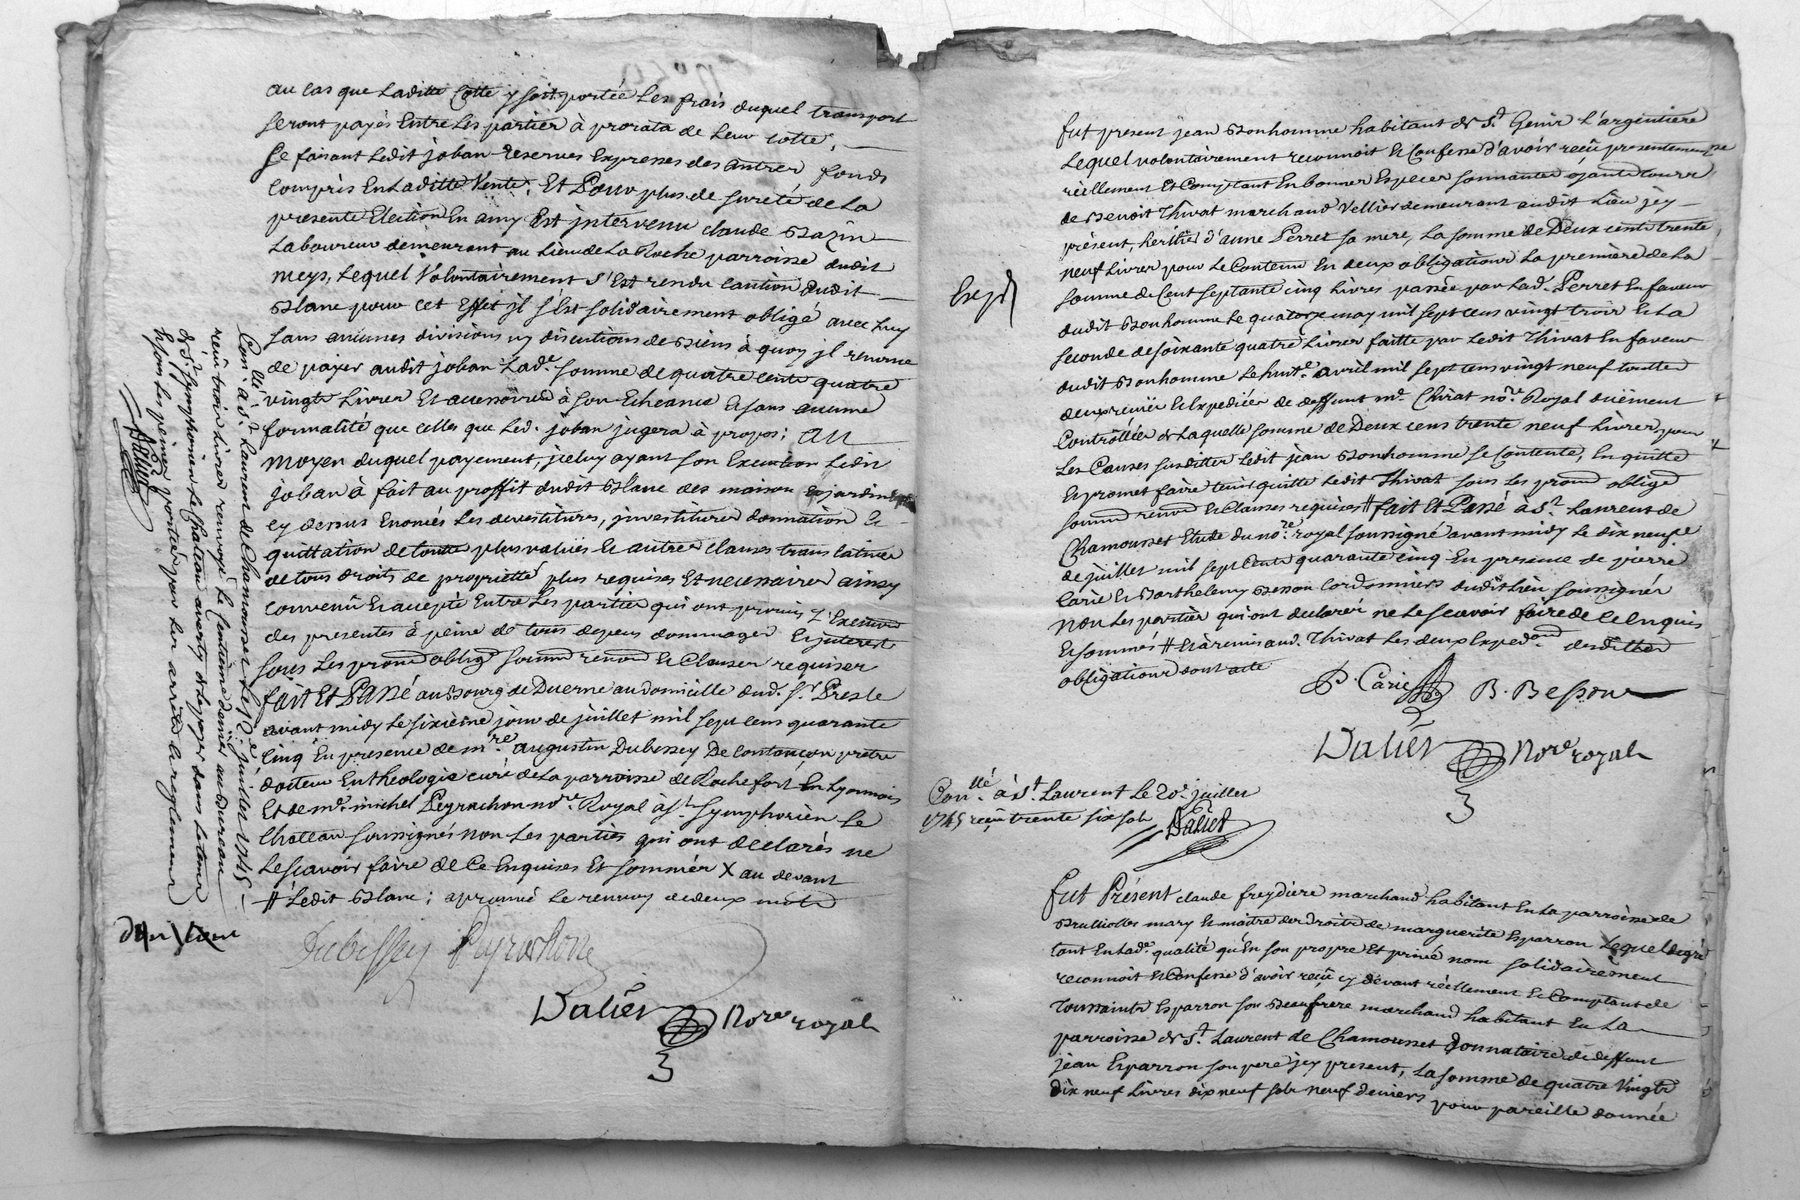 au cas que laditte Cotte y soit portée les frais duquel transport
seront payés Entre les partier à prorata de leur cotte,
se faisant ledit joban reserves Expresses des autres fonds
compris En laditte Vente; Et Pour plus de sureté de la
presente Election En amy Est jntervenu claude Bazin
Laboureur demeurant au lieu de la Roche parroisse dudit
meys, Lequel Volontairement s'Est rendu caution dudit
Blanc pour cet Effet jl s'Est solidairement obligé avec luy
sans aucunes divisions ny discutions de Biens à quoy jl renonce
de payer audit joban Lad.e somme de quatre cents quatre
vingts Livres Et accessoires à son Echeance Et sans aucune
formalité que celles que led. joban jugera à propos; au
moyen duquel payement, jceluy ayant son Execution Ledit
joban à fait au proffit dudit Blanc des maison Et jardin
cy dessus Enoncés les devestitures, jnvestitures donnation Et
quittation de toutte plus values Et autres clauses translatives
de tous droits de proprietté plus requises Et necessaires ainsy
convenu Et accepté Entre les parties qui ont promis L'Execution
des presentes à peine de tous depens dommages Et jnterest
sous Les prom.d oblig.d soumd renond Et Clauses requises
fait Et Passé au Bourg de Duerne au domicille dud. S.r Presle
avant midy le sixième jour de juillet mil sept cens quarante
cinq En presence de m.re augustin Dubessey De Contanson prêtre
docteur En theologie curé de la parroisse de Rochefort En Lyonnois
Et de m.e michel Peyrachon no.re Royal à S.t Symphorien le
Chateau soussignés non Les parties qui ont declarés ne
Le scavoir faire de Ce Enquises Et sommés X au devant
# Ledit Blanc; aprouvé le renvoy de deux mots
Dubessey Peyrachon
Dalier No.re royal
Con.llé à S.t Laurent de Chamousset le 12.e juillet 1745
reçu trois livres renvoyé le centième denier au Bureau
de S.t Symphorien le Chateau averty de le payer dans le temps
sous les peines portées par les arrests Et reglemens
Dalier
Exp.d
fut present jean Bonhomme habitant de S.t Genis L'argentiere
Lequel volontairement reconnoit Et Confesse d'avoir reçû presentement
réellement Et Comptant En bonnes Especes sonnantes ayants cours
de Benoit Thivat marchand Vellier demeurant audit Lieu jcy
présent, heritier d'anne Perret sa mere, La somme de Deux cents trente
neuf Livres pour le Contenu En deux obligations La première de La
somme de Cent septante cinq Livres passée par Lad. Perret En faveur
dudit Bonhomme le quatorze may mil sept cens vingt trois Et La
seconde de soixante quatre Livres faitte par Ledit Thivat En faveur
dudit Bonhomme le huit.e avril mil sept cens vingt neuf touttes
deux reçues Et Expediées de deffunt m.e Chirat no.re Royal duëment
Contrôllées de laquelle somme de Deux cens trente neuf Livres pour
Les Causes susdittes Ledit jean Bonhomme se Contente, En quitte
Et promet faire tenir quitte Ledit Thivat sous Les promd obligd
soumd renond Et Clauses requises # fait Et Passé à S.t Laurent de
Chamousset Etude du no.re royal soussigné avant midy Le dix neuf.e
de juillet mil sept Cents quarante cinq En presence de pierre
Carie Et Barthelemy Besson Cordonniers dudit Lieu soussignés
Non Les parties qui ont declarés ne le scavoir faire de Ce Enquis
Et sommés # Et à remis aud. Thivat Les deux Exped.ons desdittes
obligations dont acte
P. Carie B. Besson
Dalier No.re royal
Con.llé à S.t Laurent Le 20.e juillet
1745 reçu trente six sols Dalier
Fut Présent claude freydiere marchand habitant En La parroisse de
Brullioles mary Et maitre des Droits de marguerite Esparron Lequel de gré
tant En Lad.e qualité qu'En son propre Et privé nom solidairement
reconnoit Et Confesse d'avoir reçû cy devant réellement Et Comptant de
Toussaints Esparron son Beaufrere marchand habitant En La
parroisse de S.t Laurent de Chamousset Donnataire de deffunt
jean Esparron son pere jcy present, La somme de quatre Vingts
dix neuf Livres dix neuf sols neuf deniers pour pareille donnée